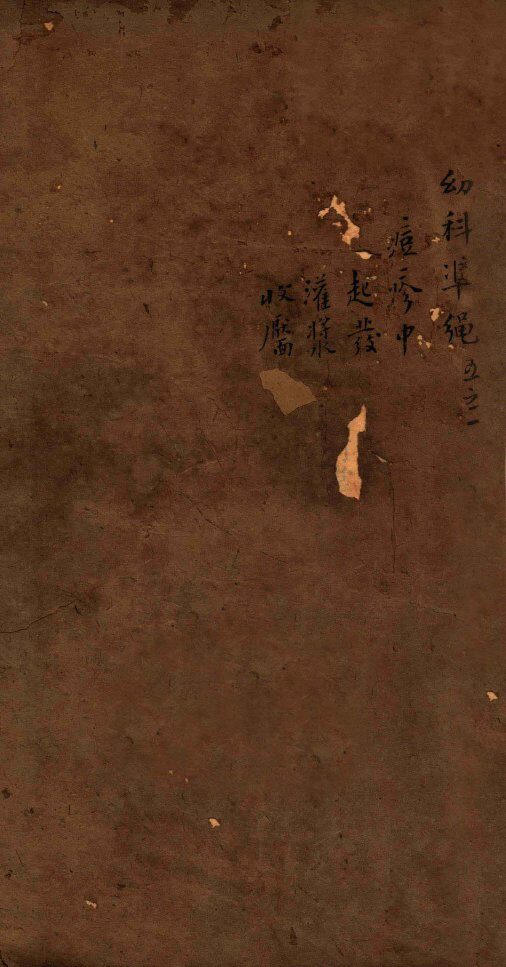 幼科準绳 五之二
痘疹中
起發
灌漿
收靨